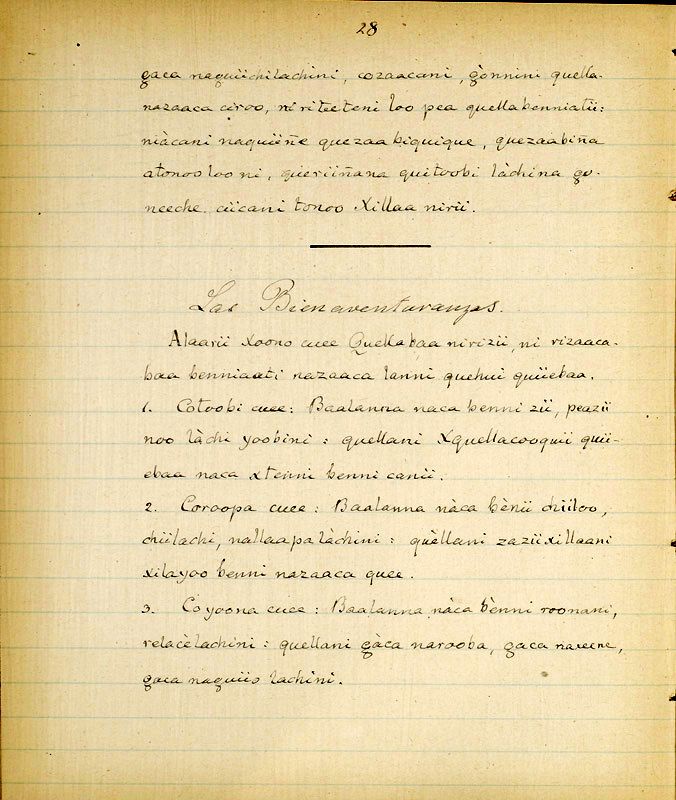 28
gaca naguiichilachini, cozaacani, gònnini quella-
nazaaca ciroo, ni riteeteni loo pea quellabenniatii:
niàcani naquiiñe quezaabiquique, quezaabiña
atonoo loo ni, queriiñana quitoobi làchina go-
neeche ciicani tonoo Xillaa nirii.
Las Bienaventuranzas.
Alaarii Xoono cuee Quellabaa nirizii, ni rizaaca-
baa benniaati nazaaca lanni quehui quiiebaa.
1. Cotoobi cuee: Baalanna naca benni zii, peazii
noo làchi yoobini: quellani Xquellacooquii quii-
ebaa naca xtenni benni canii.
2. Coroopa cuee: Baalanna nàca bènii chiiloo,
chiilachi, nallaapalàchini: quèllani zaziixillaani
xilayoo benni nazaaca quee.
3. Coyoona cuee: Baalanna nàca bènni roonani,
relacèlachini: quellani gàca narooba, gaca naxeene,
gaca naguiio lachini.